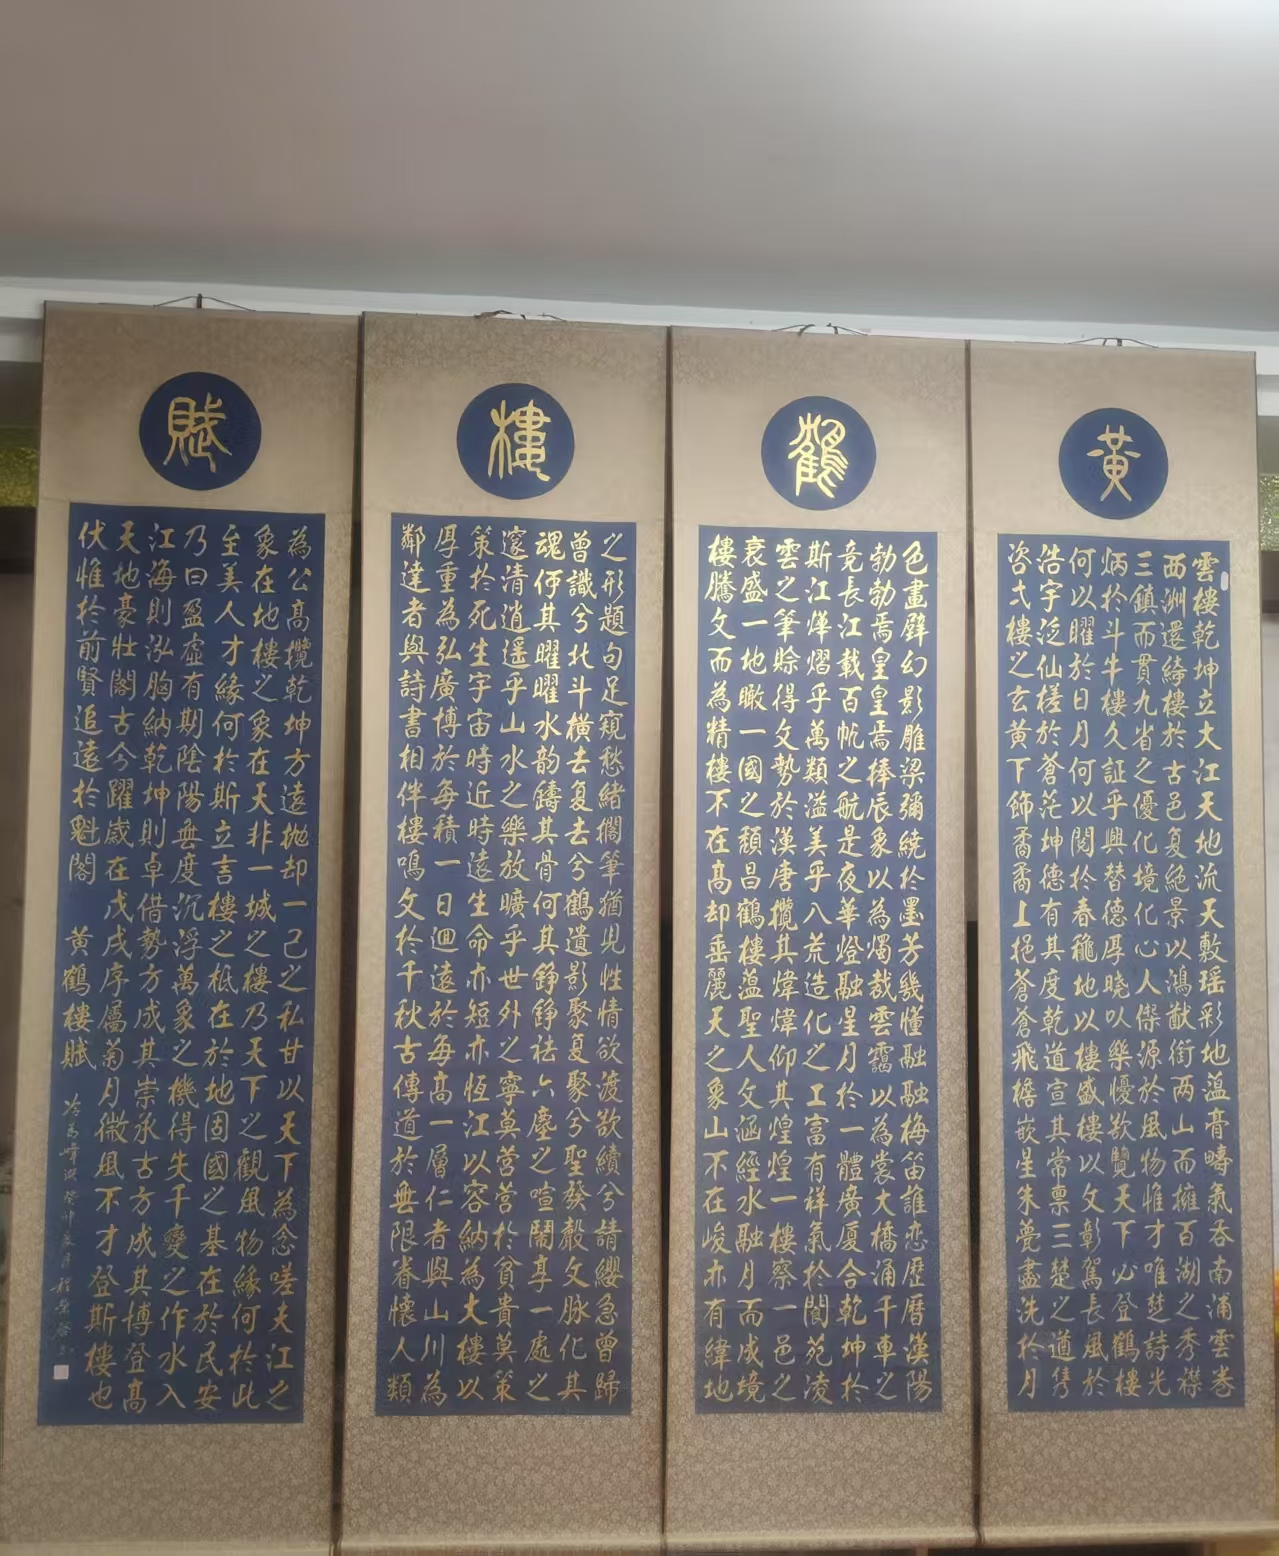 黃
鶴
樓
賦
雲樓乾坤立大江天地流天敷瑶彩地蕴膏疇氣吞南浦雲卷
西洲還綺樓於古邑复絕景以鴻猷銜兩山而擁百湖之秀襟
三鎮而貫九省之優化境化心人傑源於風物惟才唯楚詩光
炳於斗牛樓久証乎興替德厚曉以樂憂欸覽天下必登鶴樓
何以曜於日月何以閱於春穐地以樓盛樓以文彰駕長風於
浩宇泛仙槎於蒼茫坤德有其度乾道宣其常禀三楚之道雋
咨弌樓之玄黃下飾矞矞上挹蒼蒼飛檐嵌星朱甍盡洗於月
色畫壁幻影雕梁彌繞於墨芳幾憧融融梅笛誰恋歷曆漢陽
勃勃焉皇皇焉棒辰象以為燭哉雲靄以為裳大橋涌千車之
竞長江載百帆之航是夜華燈融星月於一體廣厦合乾坤於
斯江燁熠乎萬類溢美乎八荒造化之工富有祥氣於閬苑凌
雲之筆賒得文勢於漢唐攬其煒煒仰其煌煌一樓察一邑之
衰盛一地瞰一國之頹昌鶴樓蕴聖人文涵經水融月而成境
樓騰文而為精樓不在高却垂麗天之象山不在峻亦有緯地
之形題句足窺愁緒擱筆猶見性情欲渡欲續兮請纓急曾歸
曾識兮北斗橫去复去兮鶴遺影聚夏聚兮聖發觳文脉化其
魂俜其曜曜水韵鑄其骨何其錚錚祛六塵之喧鬧享一處之
邃清逍遥乎山水之樂放曠乎世外之寧莫营营於貧貴莫策
策於死生宇宙時近時遠生命亦短亦恆江以容納為大樓以
厚重為弘廣博於每積一日迴遠於每高一層仁者與山川為
鄰達者與詩書相伴樓鳴文於千秋古傳道於無限眷懷人類
為公高欖乾坤方遠抛却一己之私甘以天下為念嗟夫江之
象在地樓之象在天非一城之樓乃天下之觀風物緣何於此
至美人才緣何於斯立言樓之柢在於地固國之基在於民安
乃曰盈虛有期陰陽無度沉浮萬象之機得失千變之作水入
江海則泓胸納乾坤則卓借勢方成其崇承古方成其博登高
天地豪壮閣古今躍崴在戊戌序屬菊月微風不才登斯樓也
伏惟於前賢追遠於魁閣 黃鶴樓賦